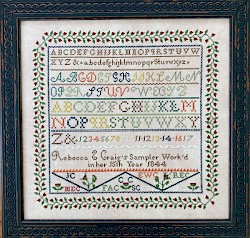 ABCDEFGHIJKLMNOPQRSTUVW
XYZ&abcdefghijklmnopqrstuvwxyz
ABCDEFGHIJKLMN
OPQRSTUVWXYZ
ABCDEFGHIJKLM
NOPQRSTUVWXY
Z&12345678 11·12·13·14·15·16·17
Rebecca E Craig's Sampler Work'd
in her 15th Year 1844
JC EWC
MEC FAC SC